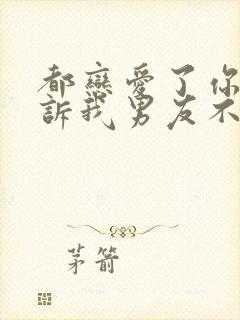 都戀愛了你
訴我男友不
茅箭